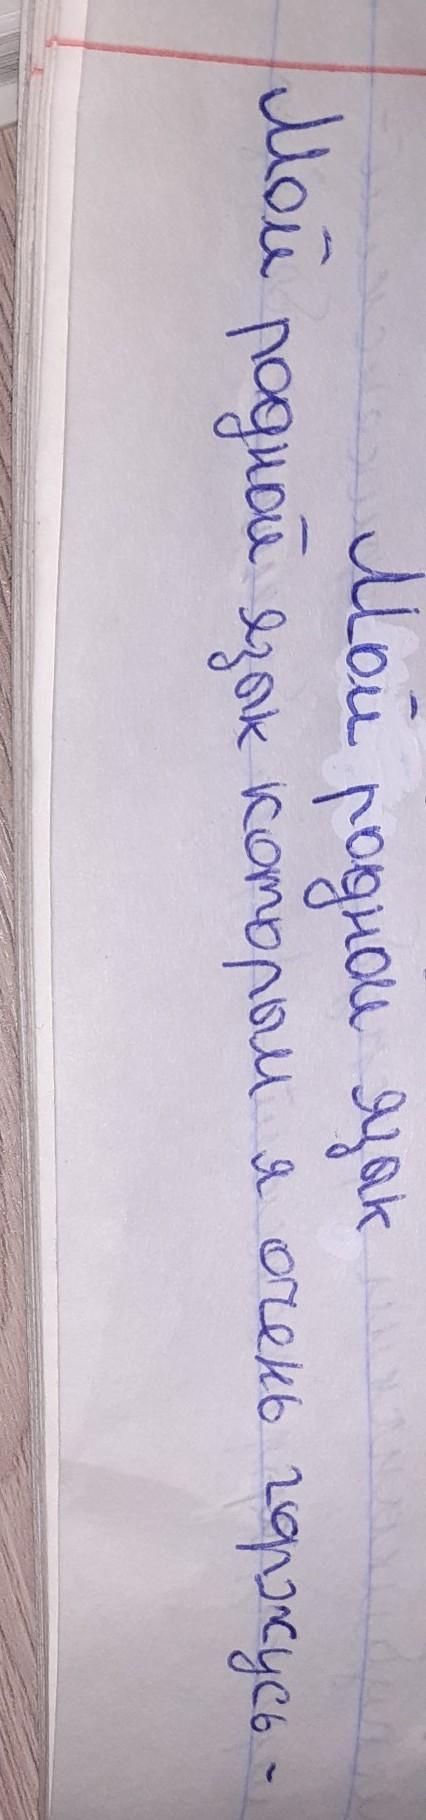 Мой родной язык
Мой родной язык которым я очень горжусь -